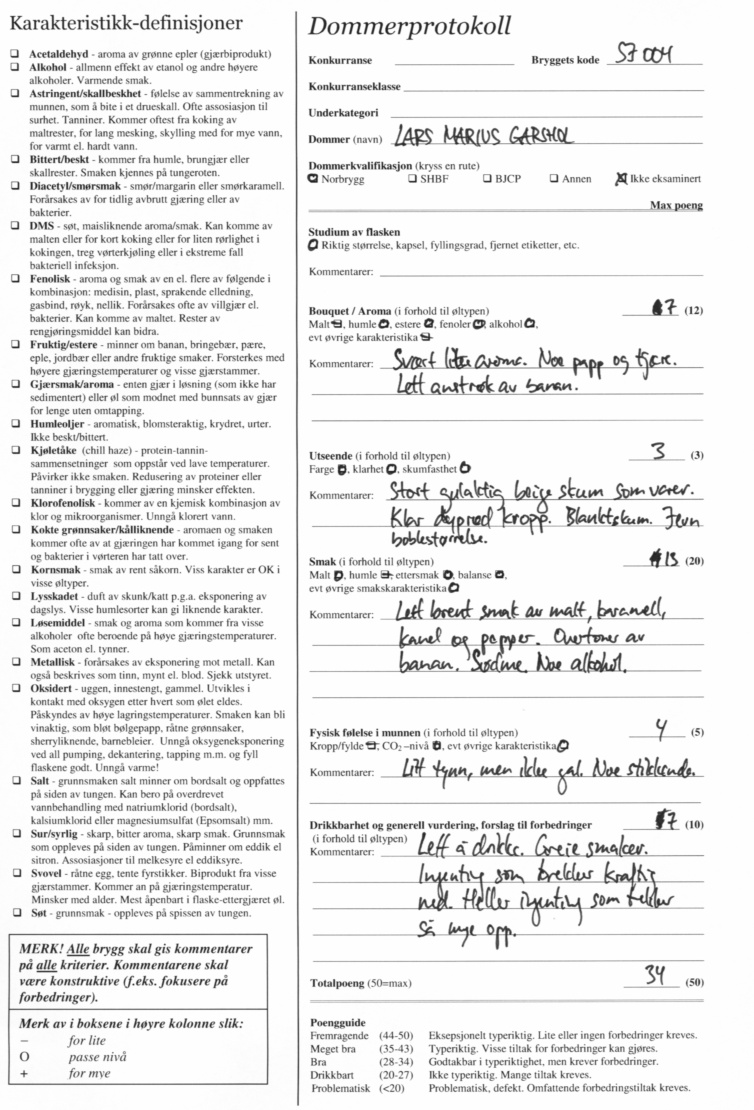 Karakteristikk-definisjoner
❏ Acetaldehyd - aroma av grønne epler (gjærbiprodukt)
❏ Alkohol - allmenn effekt av etanol og andre høyere
alkoholer. Varmende smak.
❏ Astringent/skallbeskhet - følelse av sammentrekning av
munnen, som å bite i et drueskall. Ofte assosiasjon til
surhet. Tanniner. Kommer oftest fra koking av
maltrester, for lang mesking, skylling med for mye vann,
for varmt el. hardt vann.
❏ Bittert/beskt - kommer fra humle, brungjær eller
skallrester. Smaken kjennes på tungeroten.
❏ Diacetyl/smørsmak - smør/margarin eller smørkaramell.
Forårsakes av for tidlig avbrutt gjæring eller av
bakterier.
❏ DMS - søt, maisliknende aroma/smak. Kan komme av
malten eller for kort koking eller for liten rørlighet i
kokingen, treg vørterkjøling eller i ekstreme fall
bakteriell infeksjon.
❏ Fenolisk - aroma og smak av en el. flere av følgende i
kombinasjon: medisin, plast, sprakende elledning,
gasbind, røyk, nellik. Forårsakes ofte av villgjær el.
bakterier. Kan komme av maltet. Rester av
rengjøringsmiddel kan bidra.
❏ Fruktig/estere - minner om banan, bringebær, pære,
eple, jordbær eller andre fruktige smaker. Forsterkes med
høyere gjæringstemperaturer og visse gjærstammer.
❏ Gjærsmak/aroma - enten gjær i løsning (som ikke har
sedimentert) eller øl som modnet med bunnsats av gjær
for lenge uten omtapping.
❏ Humleoljer - aromatisk, blomsteraktig, krydret, urter.
Ikke beskt/bittert.
❏ Kjøletåke (chill haze) - protein-tannin-
sammensetninger som oppstår ved lave temperaturer.
Påvirker ikke smaken. Redusering av proteiner eller
tanniner i brygging eller gjæring minsker effekten.
❏ Klorofenolisk - kommer av en kjemisk kombinasjon av
klor og mikroorganismer. Unngå klorert vann.
❏ Kokte grønnsaker/kålliknende - aromaen og smaken
kommer ofte av at gjæringen har kommet igang for sent
og bakterier i vørteren har tatt over.
❏ Kornsmak - smak av rent såkorn. Viss karakter er OK i
visse øltyper.
❏ Lysskadet - duft av skunk/katt p.g.a. eksponering av
dagslys. Visse humlesorter kan gi liknende karakter.
❏ Løsemiddel - smak og aroma som kommer fra visse
alkoholer ofte beroende på høye gjæringstemperaturer.
Som aceton el. tynner.
❏ Metallisk - forårsakes av eksponering mot metall. Kan
også beskrives som tinn, mynt el. blod. Sjekk utstyret.
❏ Oksidert - uggen, innestengt, gammel. Utvikles i
kontakt med oksygen etter hvert som ølet eldes.
Påskyndes av høye lagringstemperaturer. Smaken kan bli
vinaktig, som bløt bølgepapp, råtne grønnsaker,
sherryliknende, barnebleier. Unngå oksygeneksponering
ved all pumping, dekantering, tapping m.m. og fyll
flaskene godt. Unngå varme!
❏ Salt - grunnsmaken salt minner om bordsalt og oppfattes
på siden av tungen. Kan bero på overdrevet
vannbehandling med natriumklorid (bordsalt),
kalsiumklorid eller magnesiumsulfat (Epsomsalt) mm.
❏ Sur/syrlig - skarp, bitter aroma, skarp smak. Grunnsmak
som oppleves på siden av tungen. Påminner om eddik el
sitron. Assosiasjoner til melkesyre el eddiksyre.
❏ Svovel - råtne egg, tente fyrstikker. Biprodukt fra visse
gjærstammer. Kommer an på gjæringstemperatur.
Minsker med alder. Mest åpenbart i flaske-ettergjæret øl.
❏ Søt - grunnsmak - oppleves på spissen av tungen.
MERK! Alle brygg skal gis kommentarer
på alle kriterier. Kommentarene skal
være konstruktive (f.eks. fokusere på
forbedringer).
Merk av i boksene i høyre kolonne slik:
– for lite
O passe nivå
+ for mye
Dommerprotokoll
Konkurranse Bryggets kode S7 004
Konkurranseklasse
Underkategori
Dommer (navn) LARS MARIUS GARSHOL
Dommerkvalifikasjon (kryss en rute)
Norbrygg ❏ SHBF ❏ BJCP ❏ Annen Ikke eksaminert
Max poeng
Studium av flasken
Riktig størrelse, kapsel, fyllingsgrad, fjernet etiketter, etc.
Kommentarer:
Bouquet / Aroma (i forhold til øltypen) 7 (12)
Malt, humle, estere, fenoler, alkohol,
evt øvrige karakteristika
Kommentarer: Svært lite aroma. Noe papp og tjære.
Lett anstrøk av banan.
Utseende (i forhold til øltypen) 3 (3)
Farge, klarhet, skumfasthet
Kommentarer: Stort gulaktig beige skum som varer.
Klar dyprød kropp. Blankt skum. Jevn
boblestørrelse.
Smak (i forhold til øltypen) 13 (20)
Malt, humle, ettersmak, balanse,
evt øvrige smakskarakteristika
Kommentarer: Lett brent smak av malt, karamell,
kanel og pepper. Overtoner av
banan. Sødme. Noe alkohol.
Fysisk følelse i munnen (i forhold til øltypen) 4 (5)
Kropp/fylde, CO2 –nivå, evt øvrige karakteristika
Kommentarer: Litt tynn, men ikke gal. Noe stikkende.
Drikkbarhet og generell vurdering, forslag til forbedringer 7 (10)
(i forhold til øltypen)
Kommentarer: Lett å drikke. Greie smaker.
Ingenting som trekker kraftig
ned. Heller ingenting som trekker
så mye opp.
Totalpoeng (50=max) 34 (50)
Poengguide
Fremragende (44-50) Eksepsjonelt typeriktig. Lite eller ingen forbedringer kreves.
Meget bra (35-43) Typeriktig. Visse tiltak for forbedringer kan gjøres.
Bra (28-34) Godtakbar i typeriktighet, men krever forbedringer.
Drikkbart (20-27) Ikke typeriktig. Mange tiltak kreves.
Problematisk (<20) Problematisk, defekt. Omfattende forbedringstiltak kreves.